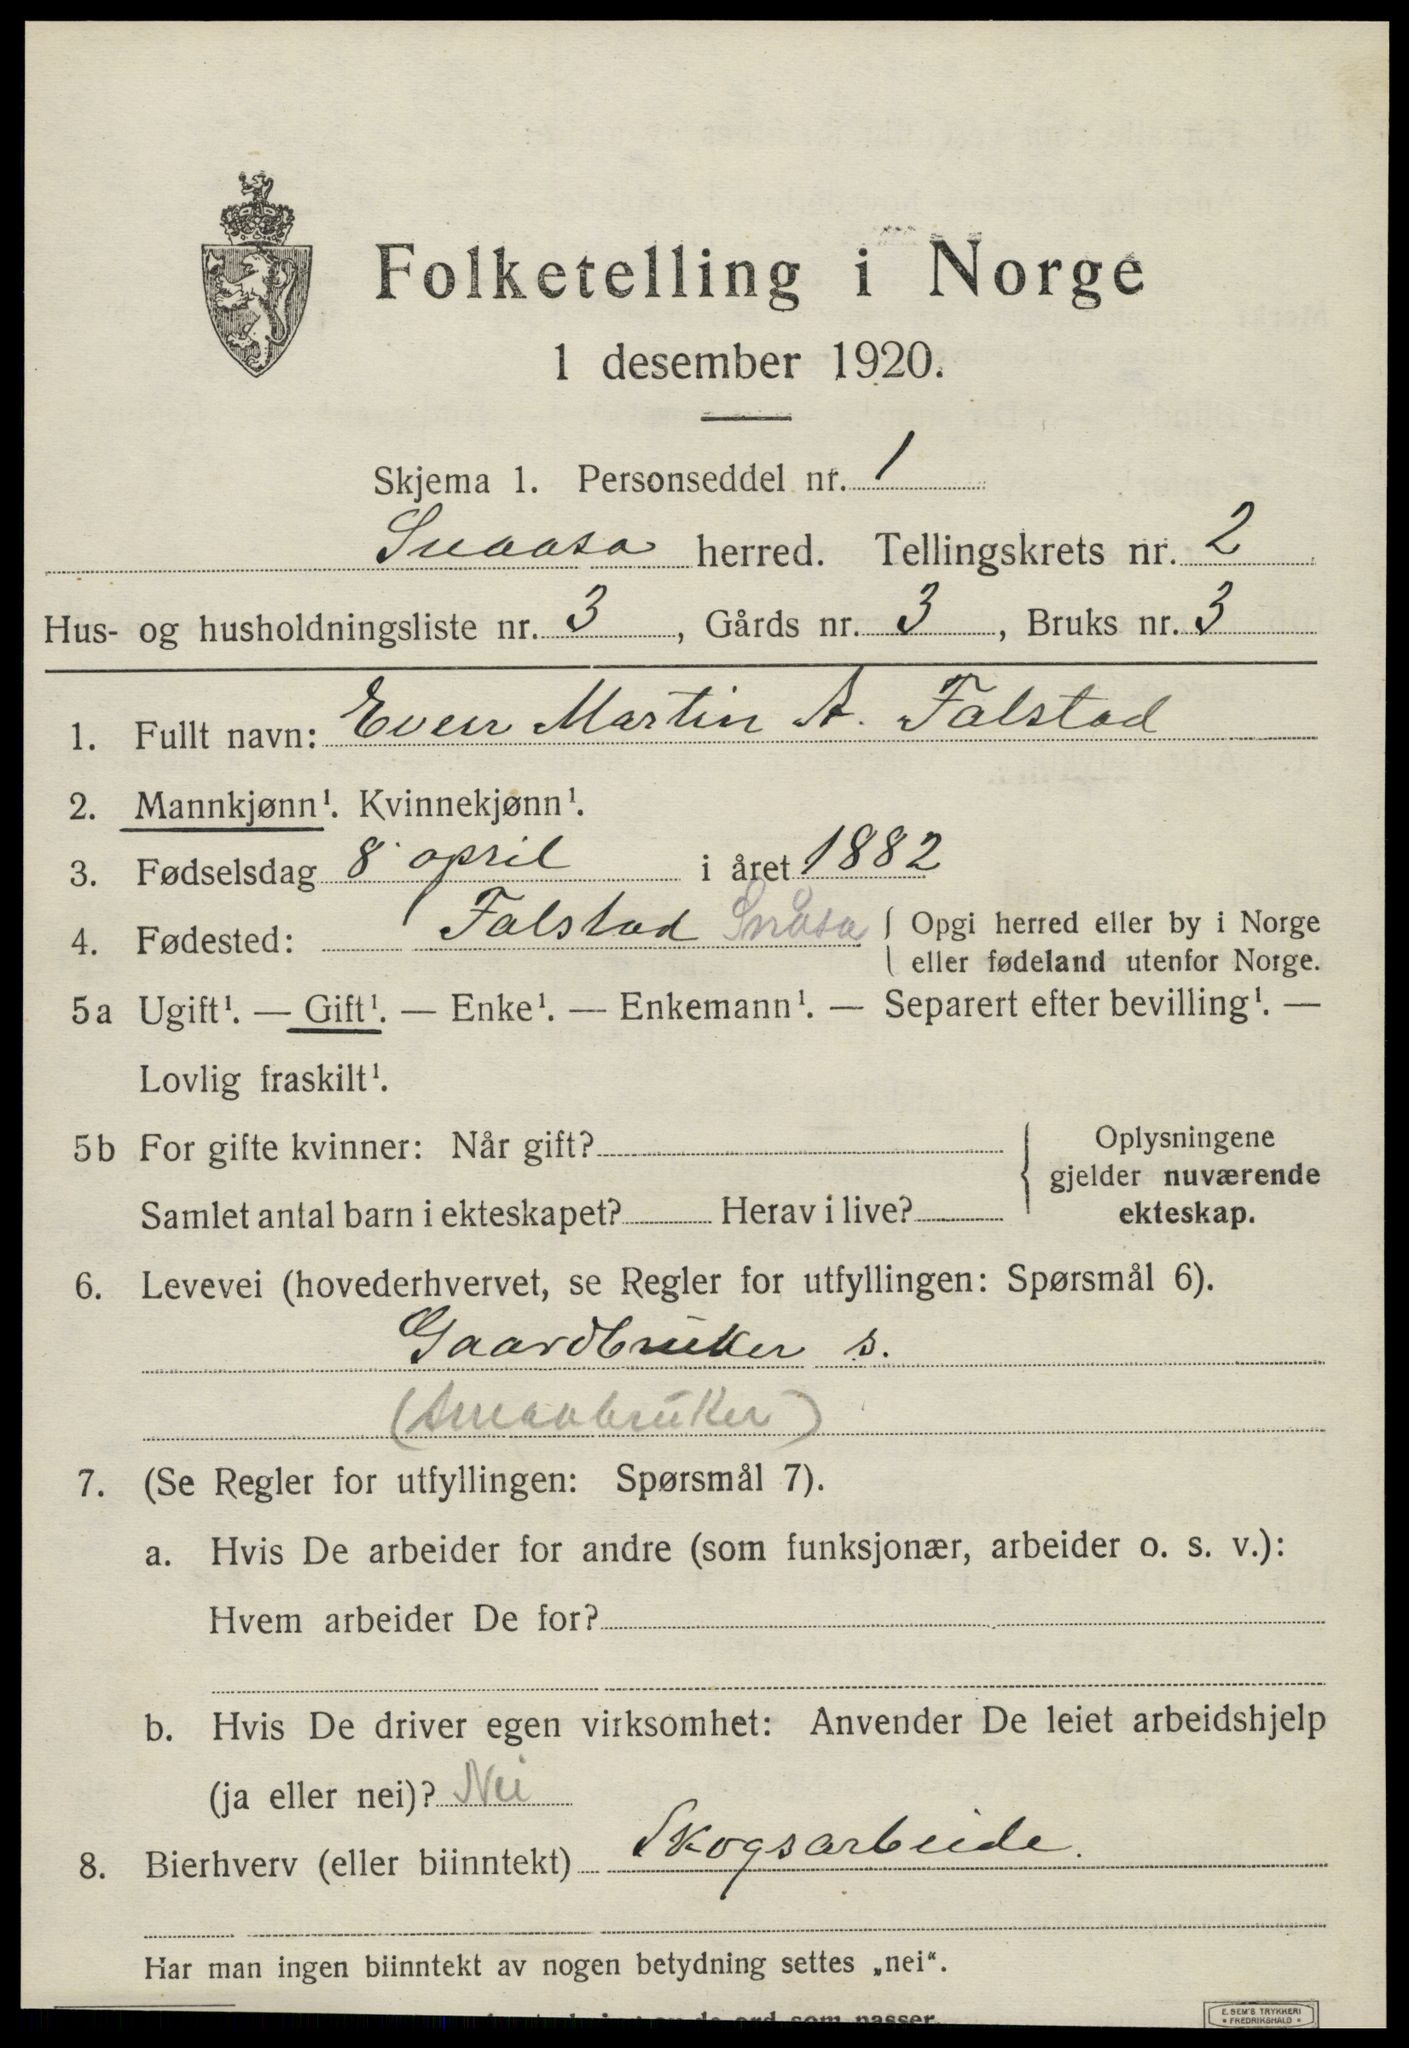 Folketelling i Norge
1 desember 1920.
Skjema 1. Personseddel nr. 1
Snaasa herred. Tellingskrets nr. 2
Hus- og husholdningsliste nr. 3, Gårds nr. 3, Bruks nr. 3
1. Fullt navn: Even Martin A. Falstad
2. Mannkjønn¹. Kvinnekjønn¹.
3. Fødselsdag 8 april i året 1882
4. Fødested: Falstad Snåsa { Opgi herred eller by i Norge
eller fødeland utenfor Norge.
5a Ugift¹. — Gift¹. — Enke¹. — Enkemann¹. — Separert efter bevilling¹. —
Lovlig fraskilt¹.
5b For gifte kvinner: Når gift?
Samlet antal barn i ekteskapet? Herav i live?
Oplysningene
gjelder nuværende
ekteskap.
6. Levevei (hovederhvervet, se Regler for utfyllingen: Spørsmål 6).
Gaardbruker s.
(Smaabruker)
7. (Se Regler for utfyllingen: Spørsmål 7).
a. Hvis De arbeider for andre (som funksjonær, arbeider o. s. v.):
Hvem arbeider De for?
b. Hvis De driver egen virksomhet: Anvender De leiet arbeidshjelp
(ja eller nei)? Nei
8. Bierhverv (eller biinntekt) Skogsarbeide.
Har man ingen biinntekt av nogen betydning settes „nei“.
de ord som passer.
E. SEM'S TRYKKERI
FREDRIKSHALD